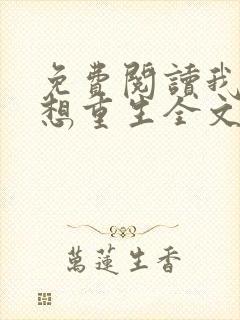 免費閱讀我
想重生全文
萬蓮生香